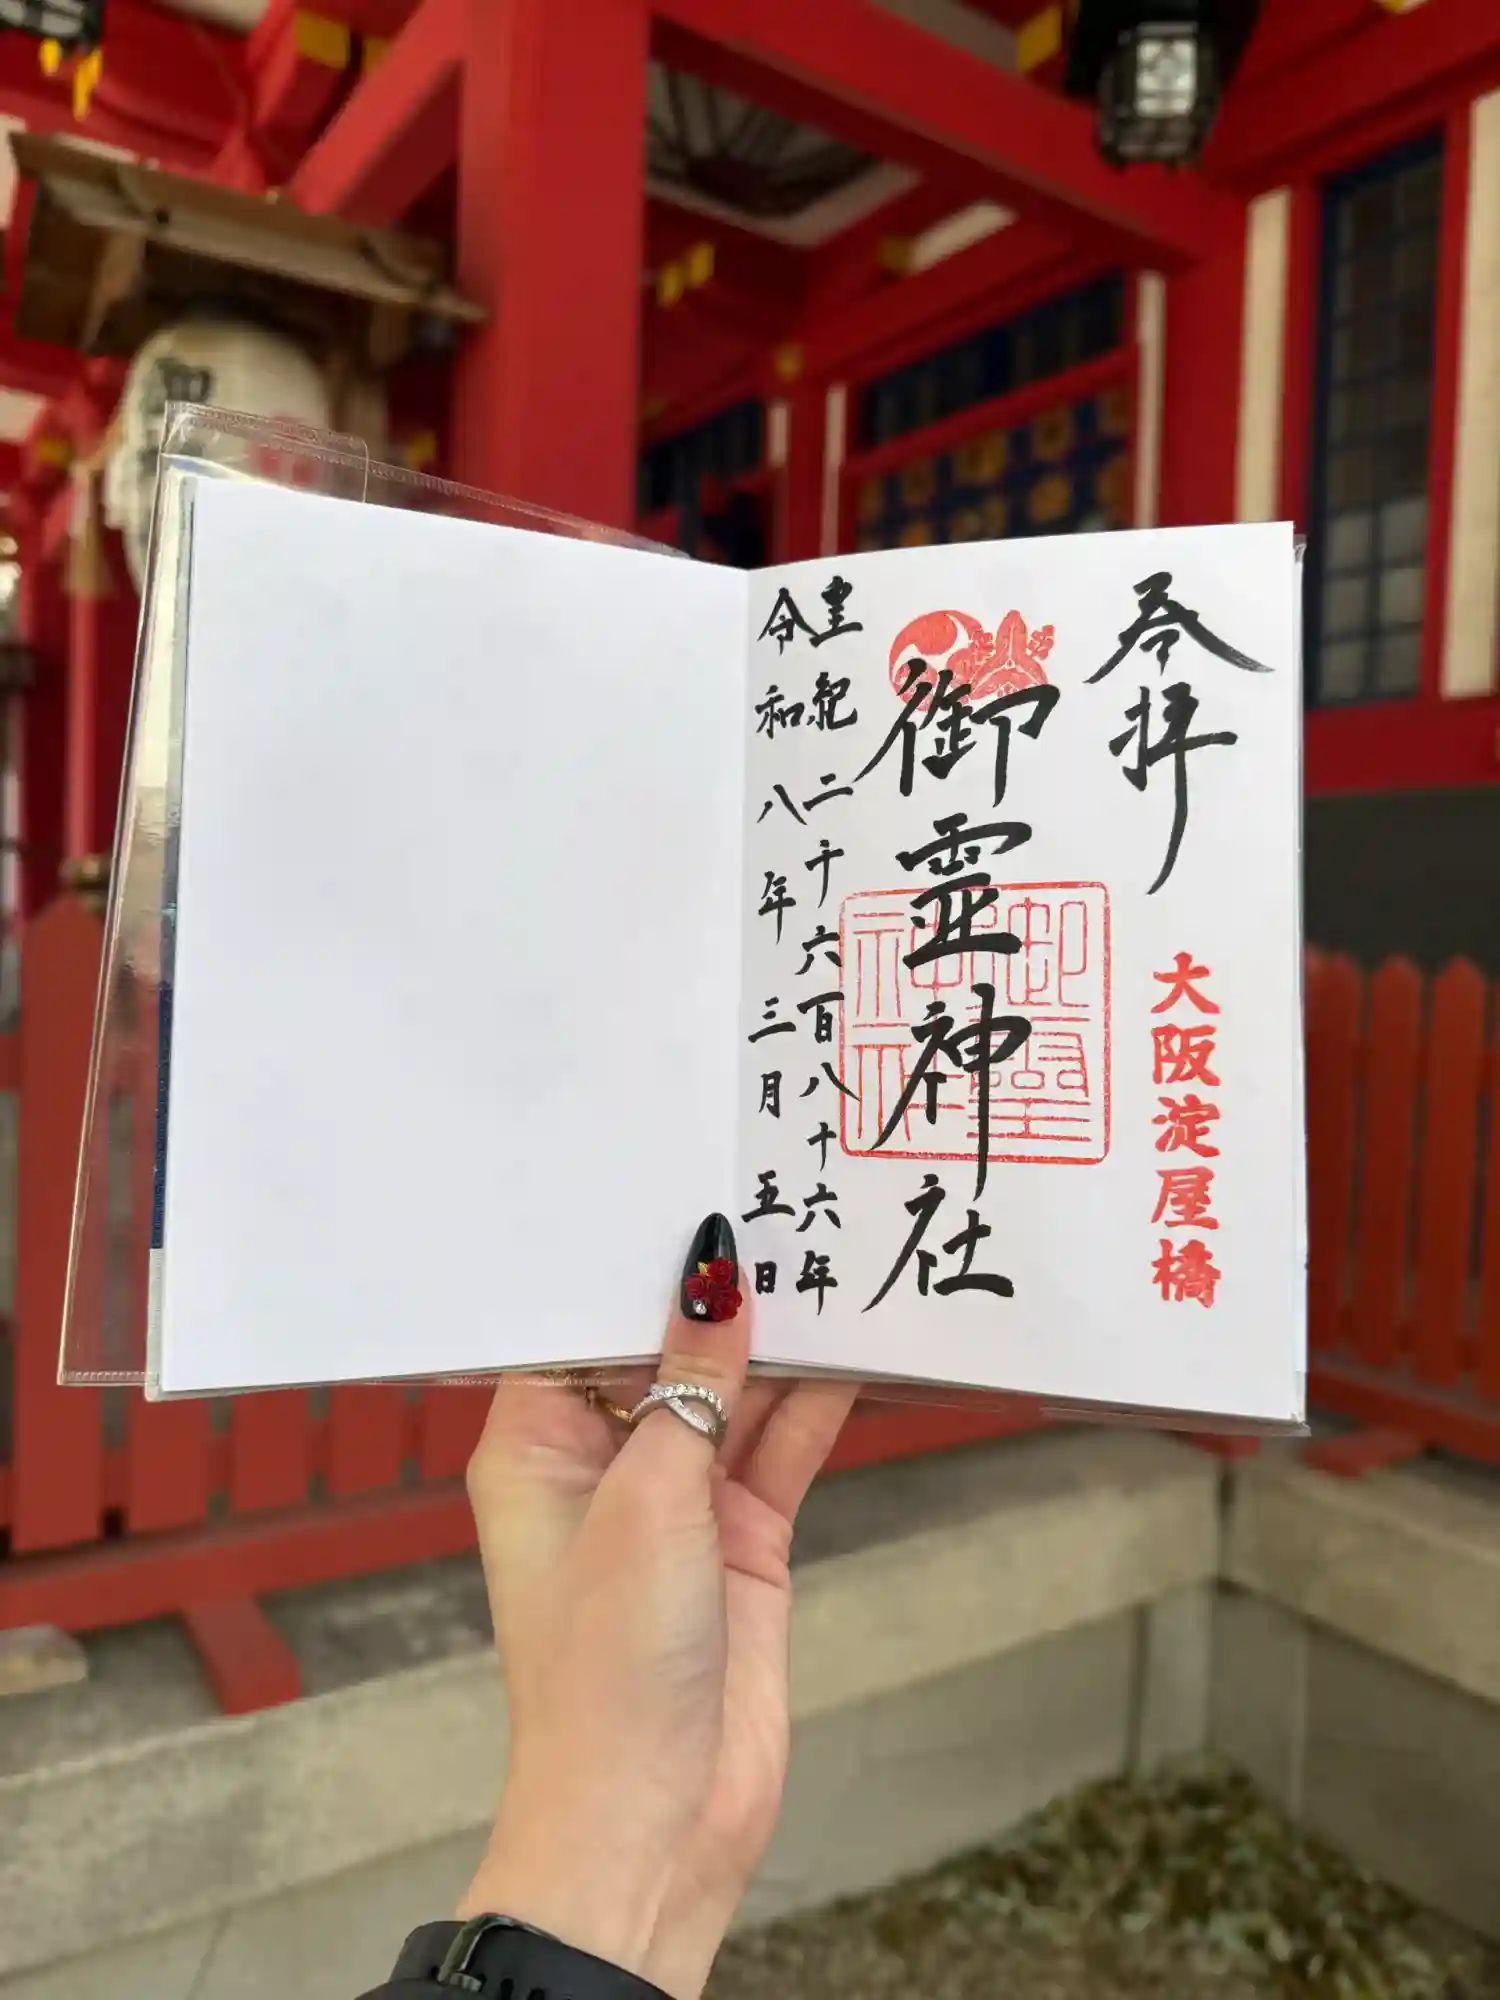 奉拝
大阪淀屋橋
御霊神社
御霊神社
皇紀二千六百八十六年
令和八年三月五日